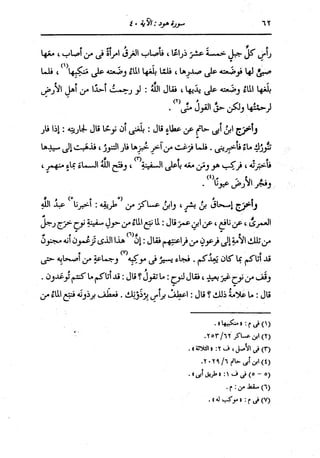 ٦٢ سورة هود : الآية ٤٠
رأسِ كلِّ جبلٍ خمسةَ عشرَ ذراعًا ، فأصاب الغرقُ امرأةً فى من أصاب ، معها
صبىٌّ لها فوضعته على صدرِها ، فلمَّا بلَغها الماءُ وضعته على مَنكِبِها(١) ، فلما
بلَغها الماءُ وضعته على يديها ، فقال اللَّهُ : لو رحِمتُ أحدًا من أهلِ الأرضِ
لرحمتُها ولكن حقَّ القولُ منِّى(٢) .
وأخرَج ابنُ أبى حاتمٍ عن عطاءٍ قال : بلَغنى أن نوحًا قال لجاريتِه : إذا فار
تنُّورُكِ ماءً فأخبِرينى . فلما فرَغت من آخرِ خبزِها فار التنورُ ، فذهبت إلى سيدِها
فأخبَرته ، فركِب هو ومَن معه بأعلى السفينةِ(٣) ، وفتَح اللَّهُ السماءَ بماءٍ منهمرٍ ،
وفجَّر الأرضَ عيونًا(٤) .
وأخرَج إسحاقُ بنُ بشرٍ ، وابنُ عساكرَ من (٥طريقِه : أخبرنا٥) عبدُ اللَّهِ
العمرىُّ ، عن نافعٍ ، عن ابنِ عمرَ قال : لما نبَع الماءُ من حولِ سفينةِ نوحٍ خرَج رجلٌ
من تلك الأمةِ إلى فرعونٍ من فراعنتِهم فقال : إنَّ(٦) هذا الذى تزعُمون أنه مجنونٌ
قد أتاكم بما كان يعِدُكم . فجاء يسيرُ فى موكبِه(٧) وجماعةٍ من أصحابِه حتى
وقَف من نوحٍ غيرَ بعيدٍ ، فقال لنوحٍ : ما تقولُ ؟ قال : قد أتاكم ما كنتم توعَدون .
قال : ما علامةُ ذلك ؟ قال : اعطِفْ برأسِ بِرذَونِك . فعطَف برذونَه فنبَع الماءُ من
(١) فى م : « منكبيها » .
(٢) ابن عساكر ٦٢/ ٢٥٣ .
(٣) فى الأصل ، ف ٢ : « الثلاثة » .
(٤) ابن أبى حاتم ٦/ ٢٠٢٩ .
(٥ - ٥) فى ف ١ : « طريق أبى » .
(٦) سقط من : م .
(٧) فى م : « موكب له » .